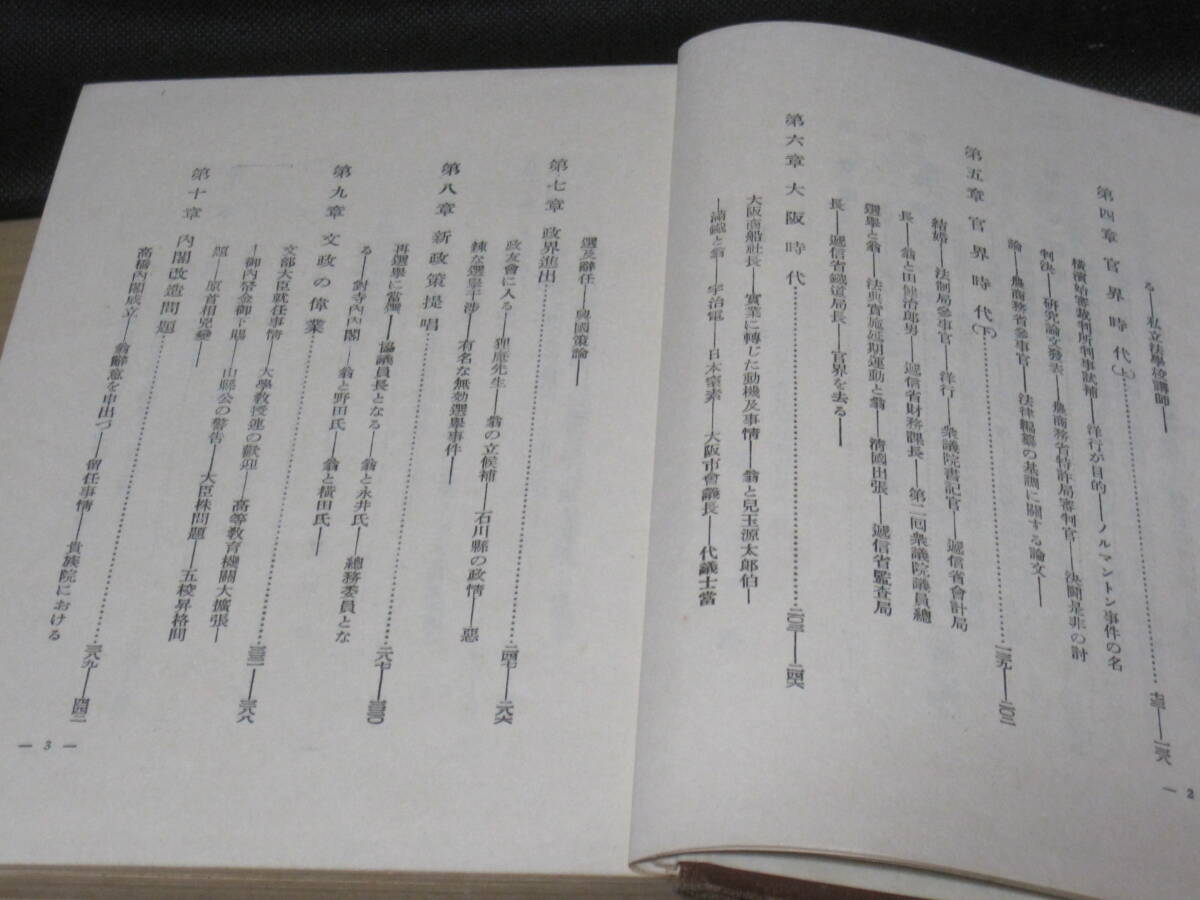 る――私立法學校講師――
第四章 官界時代(上)
橫濱始審裁判所判事試補――洋行が目的――ノルマントン事件の名
判決――硏究論文發表――農商務省特許局審判官――決鬪是非の討
論――農商務省參事官――法律編纂の基訓に關する論文――
第五章 官界時代(下)……一三九――二〇二
結婚――法制局參事官――洋行――衆議院書記官――遞信省會計局
長――翁と田健治郞男――遞信省財務課長――第二回衆議院議員總
選擧と翁――法典實施延期運動と翁――淸國出張――遞信省監査局
長――遞信省鐵道局長――官界を去る――
第六章 大阪時代……二〇三――二四六
大阪商船社長――實業に轉じた動機及事情――翁と兒玉源太郞伯―
―滿鐵と翁――宇治電――日本窒素――大阪市會議長――代議士當
― 2
選及辭任――興國策論――
第七章 政界進出……二四七――二八六
政友會に入る――狸庵先生――翁の立候補――石川縣の政情――惡
辣な選擧干涉――有名な無効選擧事件――
第八章 新政策提唱……二八七――三三〇
再選擧に當選――協議員長となる――翁と永井氏――總務委員とな
る――對寺內內閣――翁と野田氏――翁と橫田氏――
第九章 文政の偉業……三三一――三八八
文部大臣就任事情――大學敎授連の歡迎――高等敎育機關大擴張―
―御內帑金御下賜――山縣公の警告――大臣株問題――五校昇格問
題――原首相兇變――
第十章 內閣改造問題……三八九――四四二
高橋內閣成立――翁辭意を申出づ――留任事情――貴族院における
― 3 ―